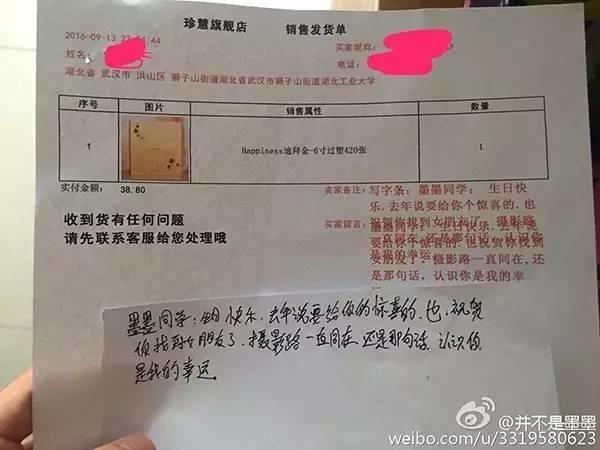 珍慧旗舰店 销售发货单
2016-09-13 23:54:44 买家昵称:
姓名: 电话:
湖北省 武汉市 洪山区 狮子山街道湖北省武汉市狮子山街道湖北工业大学
序号 图片 销售属性 数量
1 Happiness迪拜金-6寸过塑420张 1
实付金额: 38.80
收到货有任何问题
请先联系客服给您处理哦
卖家备注: 写字条: 墨墨同学: 生日快
乐.去年说要给你个惊喜的.也
祝贺你找到女朋友了; 摄影路
一直同在,还是那句话,认识你
是我的幸运
买家留言: 墨墨同学: 生日快乐.去年说
要给你个惊喜的.也祝贺你找到
女朋友了. 摄影路一直同在,还
是那句话, 认识你是我的幸
运
墨墨同学: 生日快乐. 去年说要给你的惊喜的. 也祝贺
你找到女朋友了. 摄影路一直同在. 还是那句话. 认识你
是我的幸运.
@并不是墨墨
weibo.com/u/3319580623